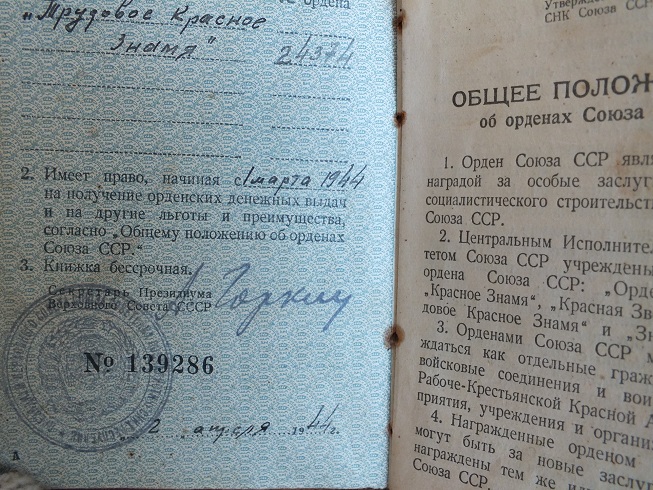 ордена
„Трудовое Красное
Знамя"
24374
2. Имеет право, начиная с 1 марта 1944
на получение орденских денежных выдач
и на другие льготы и преимущества,
согласно „Общему положению об орденах
Союза ССР.“
3. Книжка бессрочная.
Секретарь Президиума
Верховного Совета СССР
А Горкин
№ 139286
2 апреля 1944 г.
А
СНК Союза ССР
ОБЩЕЕ ПОЛОЖ
об орденах Союза
1. Орден Союза ССР явля
наградой за особые заслуг
социалистического строительст
Союза ССР.
2. Центральным Исполнител
тетом Союза ССР учреждены
ордена Союза ССР: „Орде
„Красное Знамя“, „Красная Зв
довое Красное Знамя“ и „Зн
3. Орденами Союза ССР м
ждаться как отдельные граж
войсковые соединения и вои
Рабоче-Крестьянской Красной А
приятия, учреждения и органи
4. Награжденные орденом
могут быть за новые заслуг
награждены тем же или
Союза ССР.